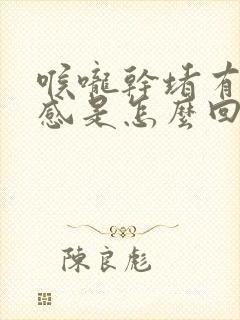 喉嚨幹堵有
感是怎麼回
陳良彪